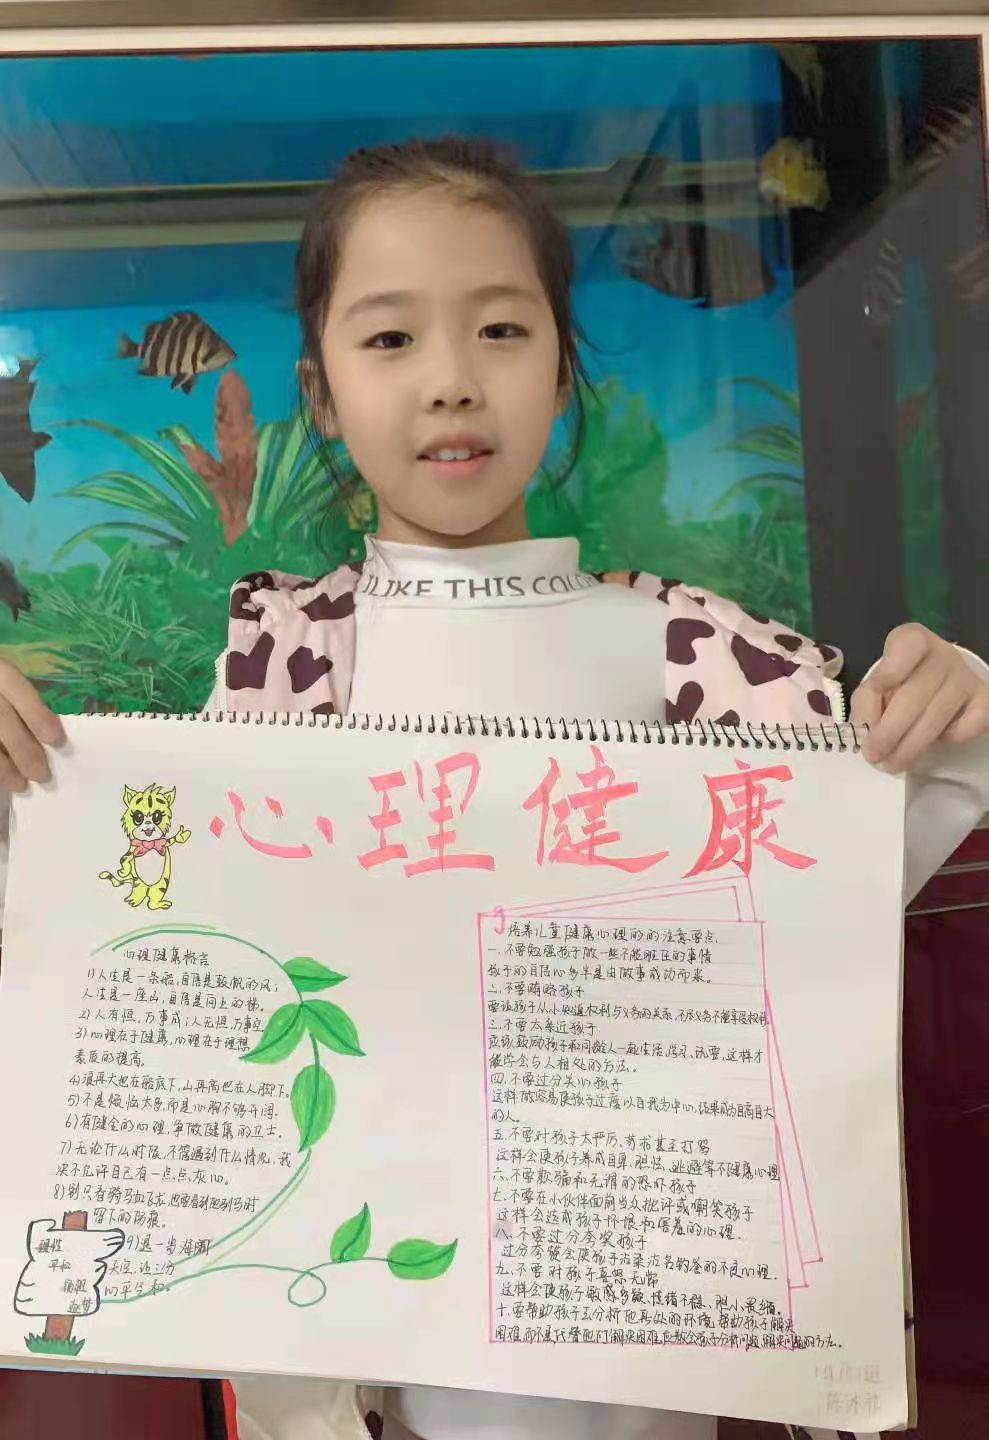 LIKE THIS COLO
心理健康
心理健康格言
1)人生是一条船,自信是鼓帆的风;
人生是一座山,自信是向上的梯。
2)人有恒,万事成;人无恒,万事空
3)心理在于健康,心理在于理想
素质的提高。
4)浪再大也在船底下,山再高也在人脚下。
5)不是烦恼太多,而是心胸不够开阔。
6)有健全的心理,争做健康的卫士。
7)无论什么时候,不管遇到什么情况,我
决不允许自己有一点点灰心。
8)别只看骑马如飞龙,也要看到他驯马时
留下的伤痕。
9)退一步海阔
天空,让三分
心平气和。
理性
平和
培养儿童健康心理的的注意要点.
一.不要勉强孩子做一些不能胜任的事情
孩子的自信心多半是由做事成功而来。
二.不要贿赂孩子
要让孩子从小知道权利与义务的关系,不尽义务不能享受权利
三.不要太亲近孩子
应该鼓励孩子和同龄人一起生活,学习,玩耍,这样才
能学会与人相处的方法。
四.不要过分关心孩子
这样做容易使孩子过度以自我为中心,结果成为自高自大
的人。
五.不要对孩子太严厉、苛求甚至打骂
这样会使孩子养成自卑、胆怯、逃避等不健康心理
六.不要欺骗和无谓的恐吓孩子
七.不要在小伙伴面前当众批评或嘲笑孩子
这样会造成孩子怀恨和害羞的心理。
八.不要过分夸奖孩子
过分夸奖会使孩子沾染沽名钓誉的不良心理.
九.不要对孩子喜怒无常
这样会使孩子敏感多疑、情绪不稳、胆小畏缩。
十.要帮助孩子去分析他所处的环境,帮助孩子解决
困难,而不是代替他们解决困难,应教会孩子分析问题,解决问题的方法。